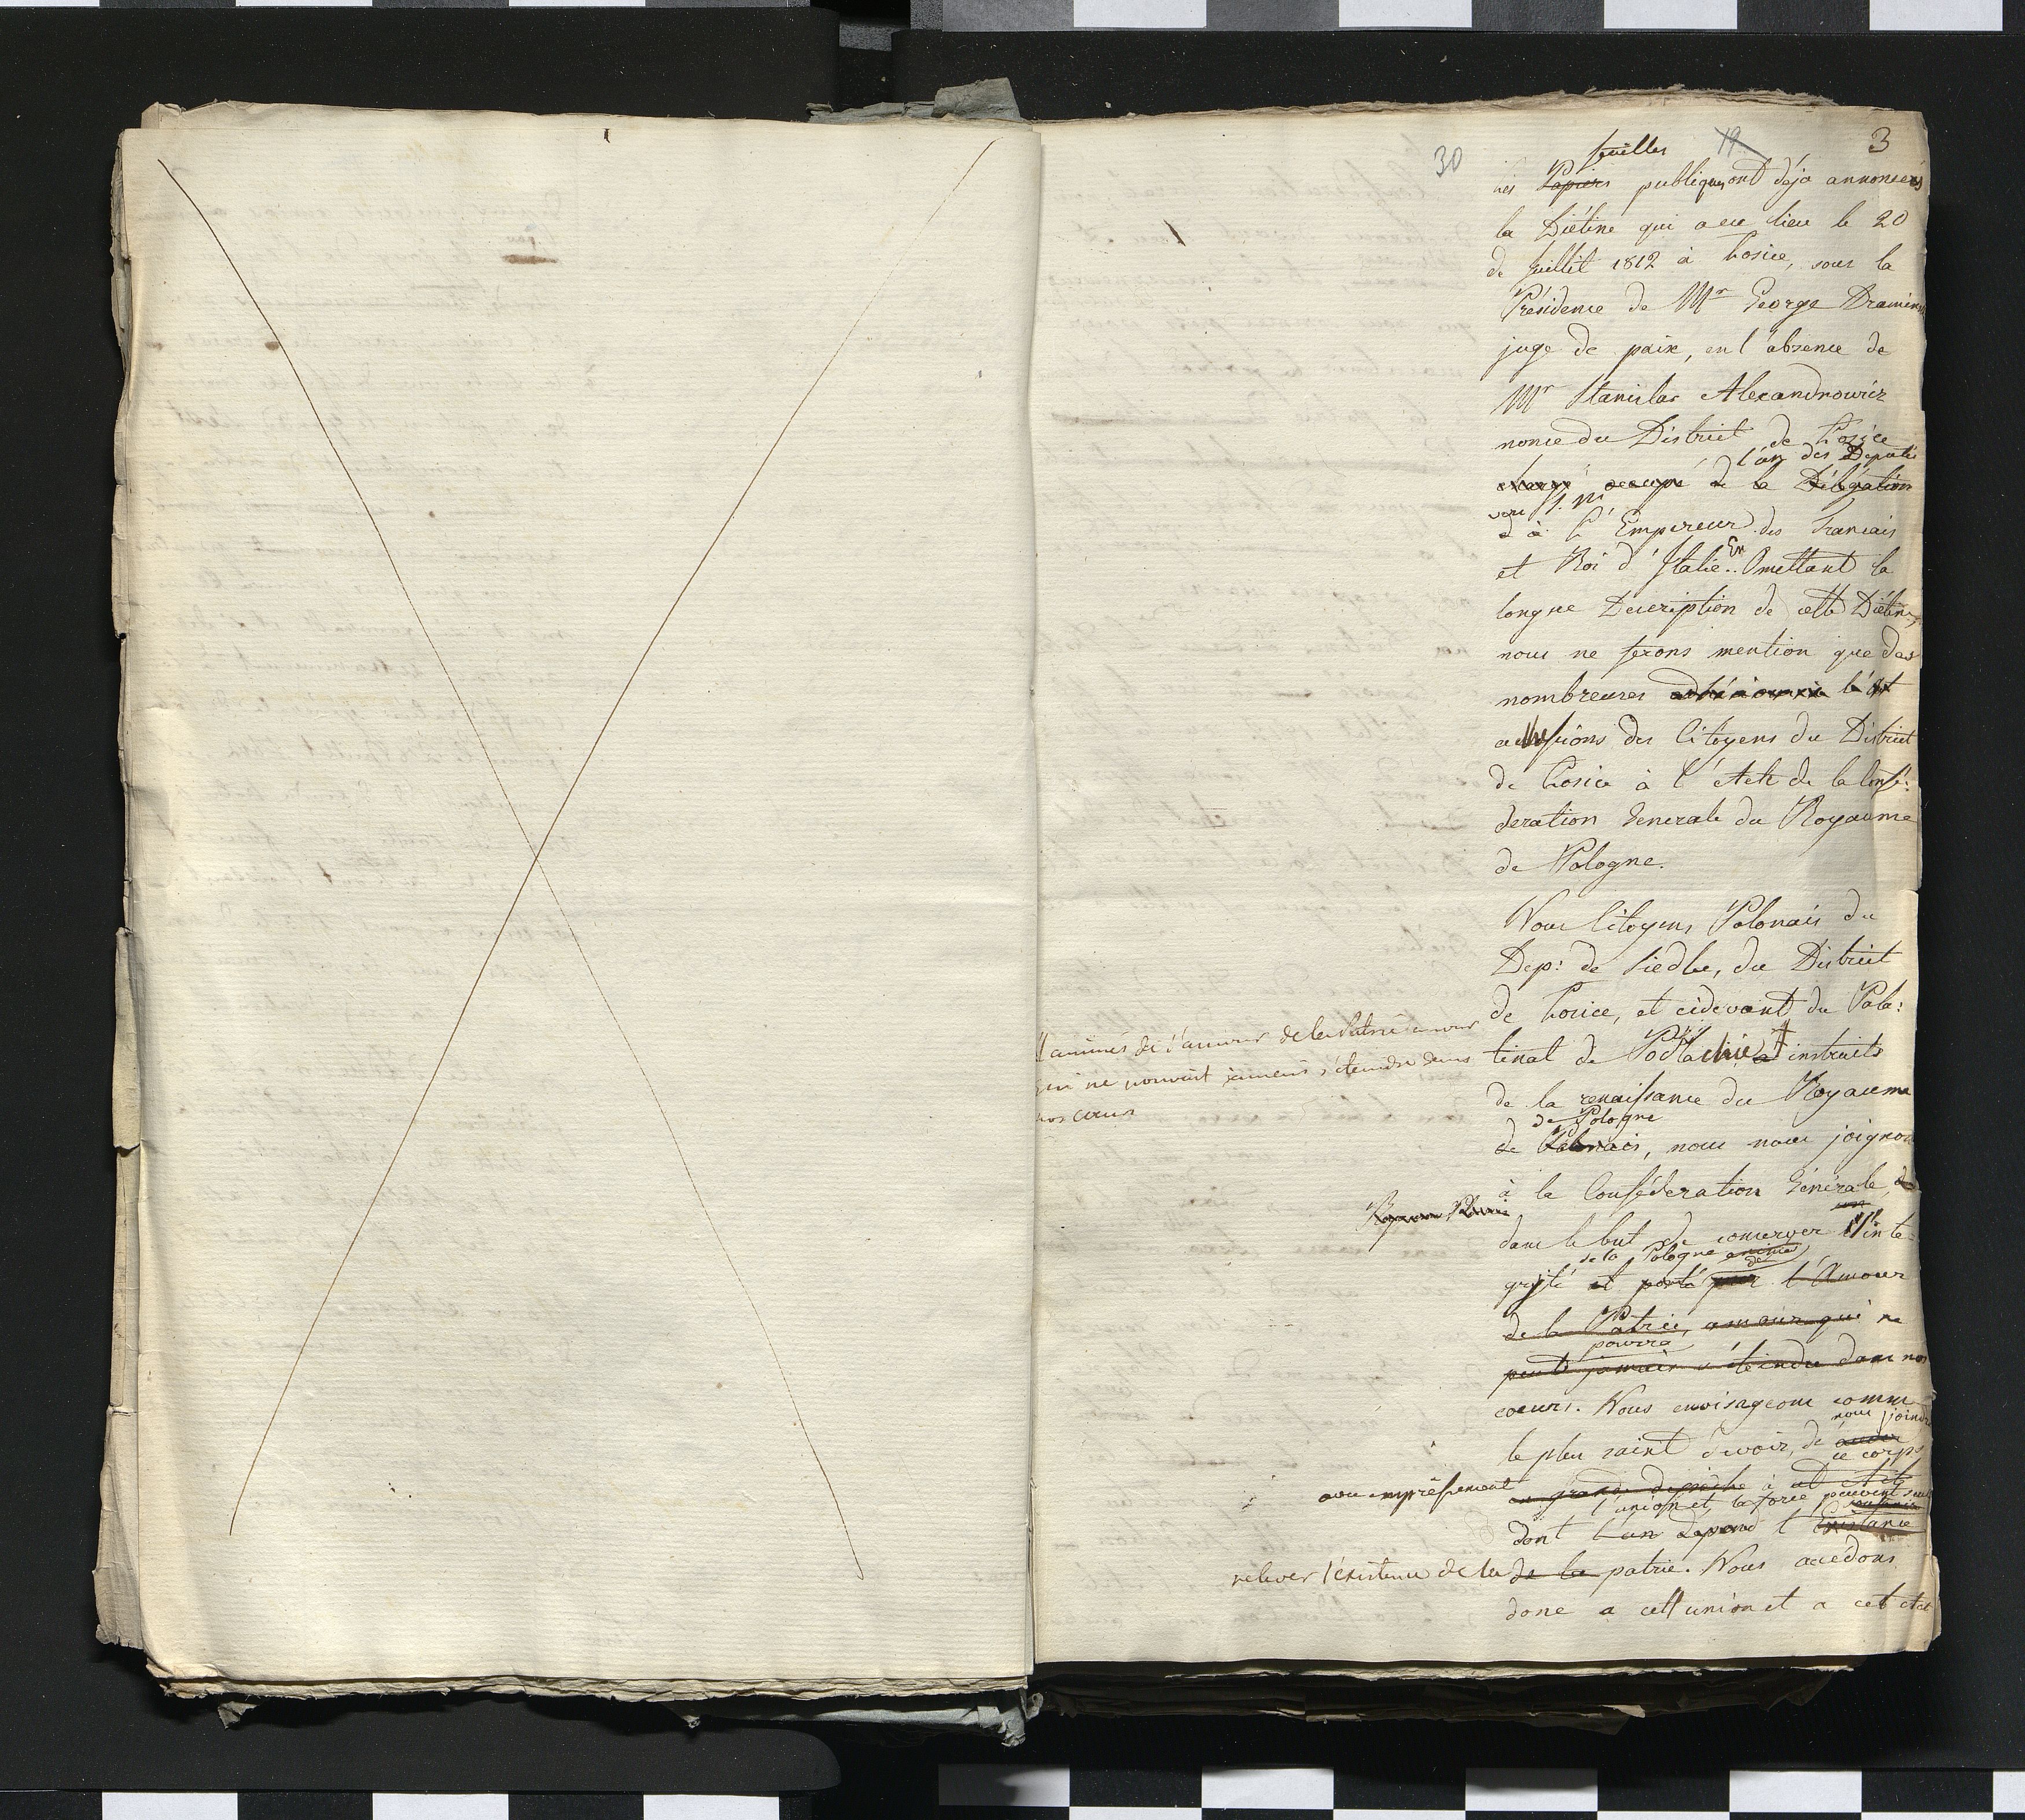 30
19
3
feuilles
Les Papiers publiques ont déja annoncés
la Diétine qui a eu lieu le 20
de Juillet 1812 à Łosice, sous la
Présidence de Mr George
juge de paix, en l'absence de
Mr Stanislas Alexandrowicz
nonce du District de Łosice
l'un des Deputés
chargé occupé de la Délégation
vers S. M.
à L'Empereur des Francais
et Roi d'Italie. En Omettant la
longue Description de cette Diétine,
nous ne ferons mention que des
nombreuses
adhesions des Citoyens du District
de Łosice à l'Acte de la Confé:
deration Generale du Royaume
de Pologne.
Nous Citoyens Polonais du
Dep: de Siedlce, du District
de Łosice, et cidevant du Pala:
tinat de Podlachie # instruits
# animés de l'amour de la Patrie amour
qui ne pouvait jamais s'éteindre dans
nos cœurs
de la renaissance du Royaume
de Pologne
de Polonais, nous nous joignons
à la Conféderation Génerale,
dans le but de conserver l'inte
de la Pologne animés
de
grité et porté par l'Amour
de la Patrie, amour qui ne
pourra
peut jamais s'éteindre dans nos
coeurs. Nous envisageons comme
nous joindre
le plus saint devoir, de
ce corps
avec empressement en grande depeche à cet Acte
l'union et la force peuvent seul
dont l'un depend l'Existance
relever l'existence de la de la patrie. Nous accédons
donc a cett union et a cet Acte